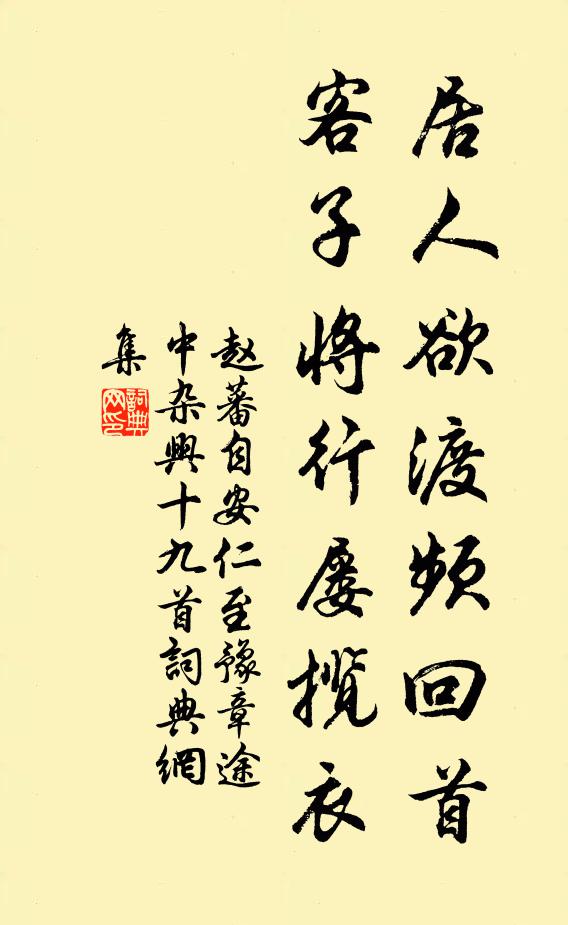 居人欲渡频回首
客子将行屡揽衣
赵蕃自安仁至豫章途
中杂兴十九首詞典網
集
詞典网印